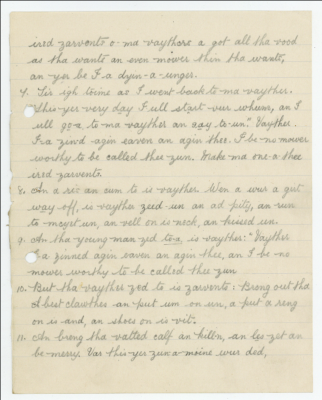 ired zarvents o-ma-vaythers a got all tha vood
as tha wants an even-mower thin tha wants,
an yer be I-a dyin-a-unger.
went back to-ma-vather.
Thic-yer very day I ull start vur whum, an I
ull go-a to-ma-vayther an zay ta-un". Vayther.
I-a zin'd agin eaven an agin thee. I-be-no mower
worthy to be called thee-zun. Make ma one-a thee
ired zarvents.
8. An a riz an cum to is vayther. Wen a wur a gurt
way off, is vayther zeed un an ad pity, an run
to meyet un, an vell on is neck, an kissed un.
9. An tha young man zed to-a is vayther: "Vayther
I-a zinned agin eaven an agin thee, an I be-no
mower worthy to-be called thee-zun
10. But tha vayther zed to is zarvents: Breng out tha
best clawthes an put um on un, a put a reng
on is-and, an shoes on is vit.
11. An breng tha vatted calf an kill-n, an les zet an
be-merry. Var thic-yer zun-a-moine wur ded,